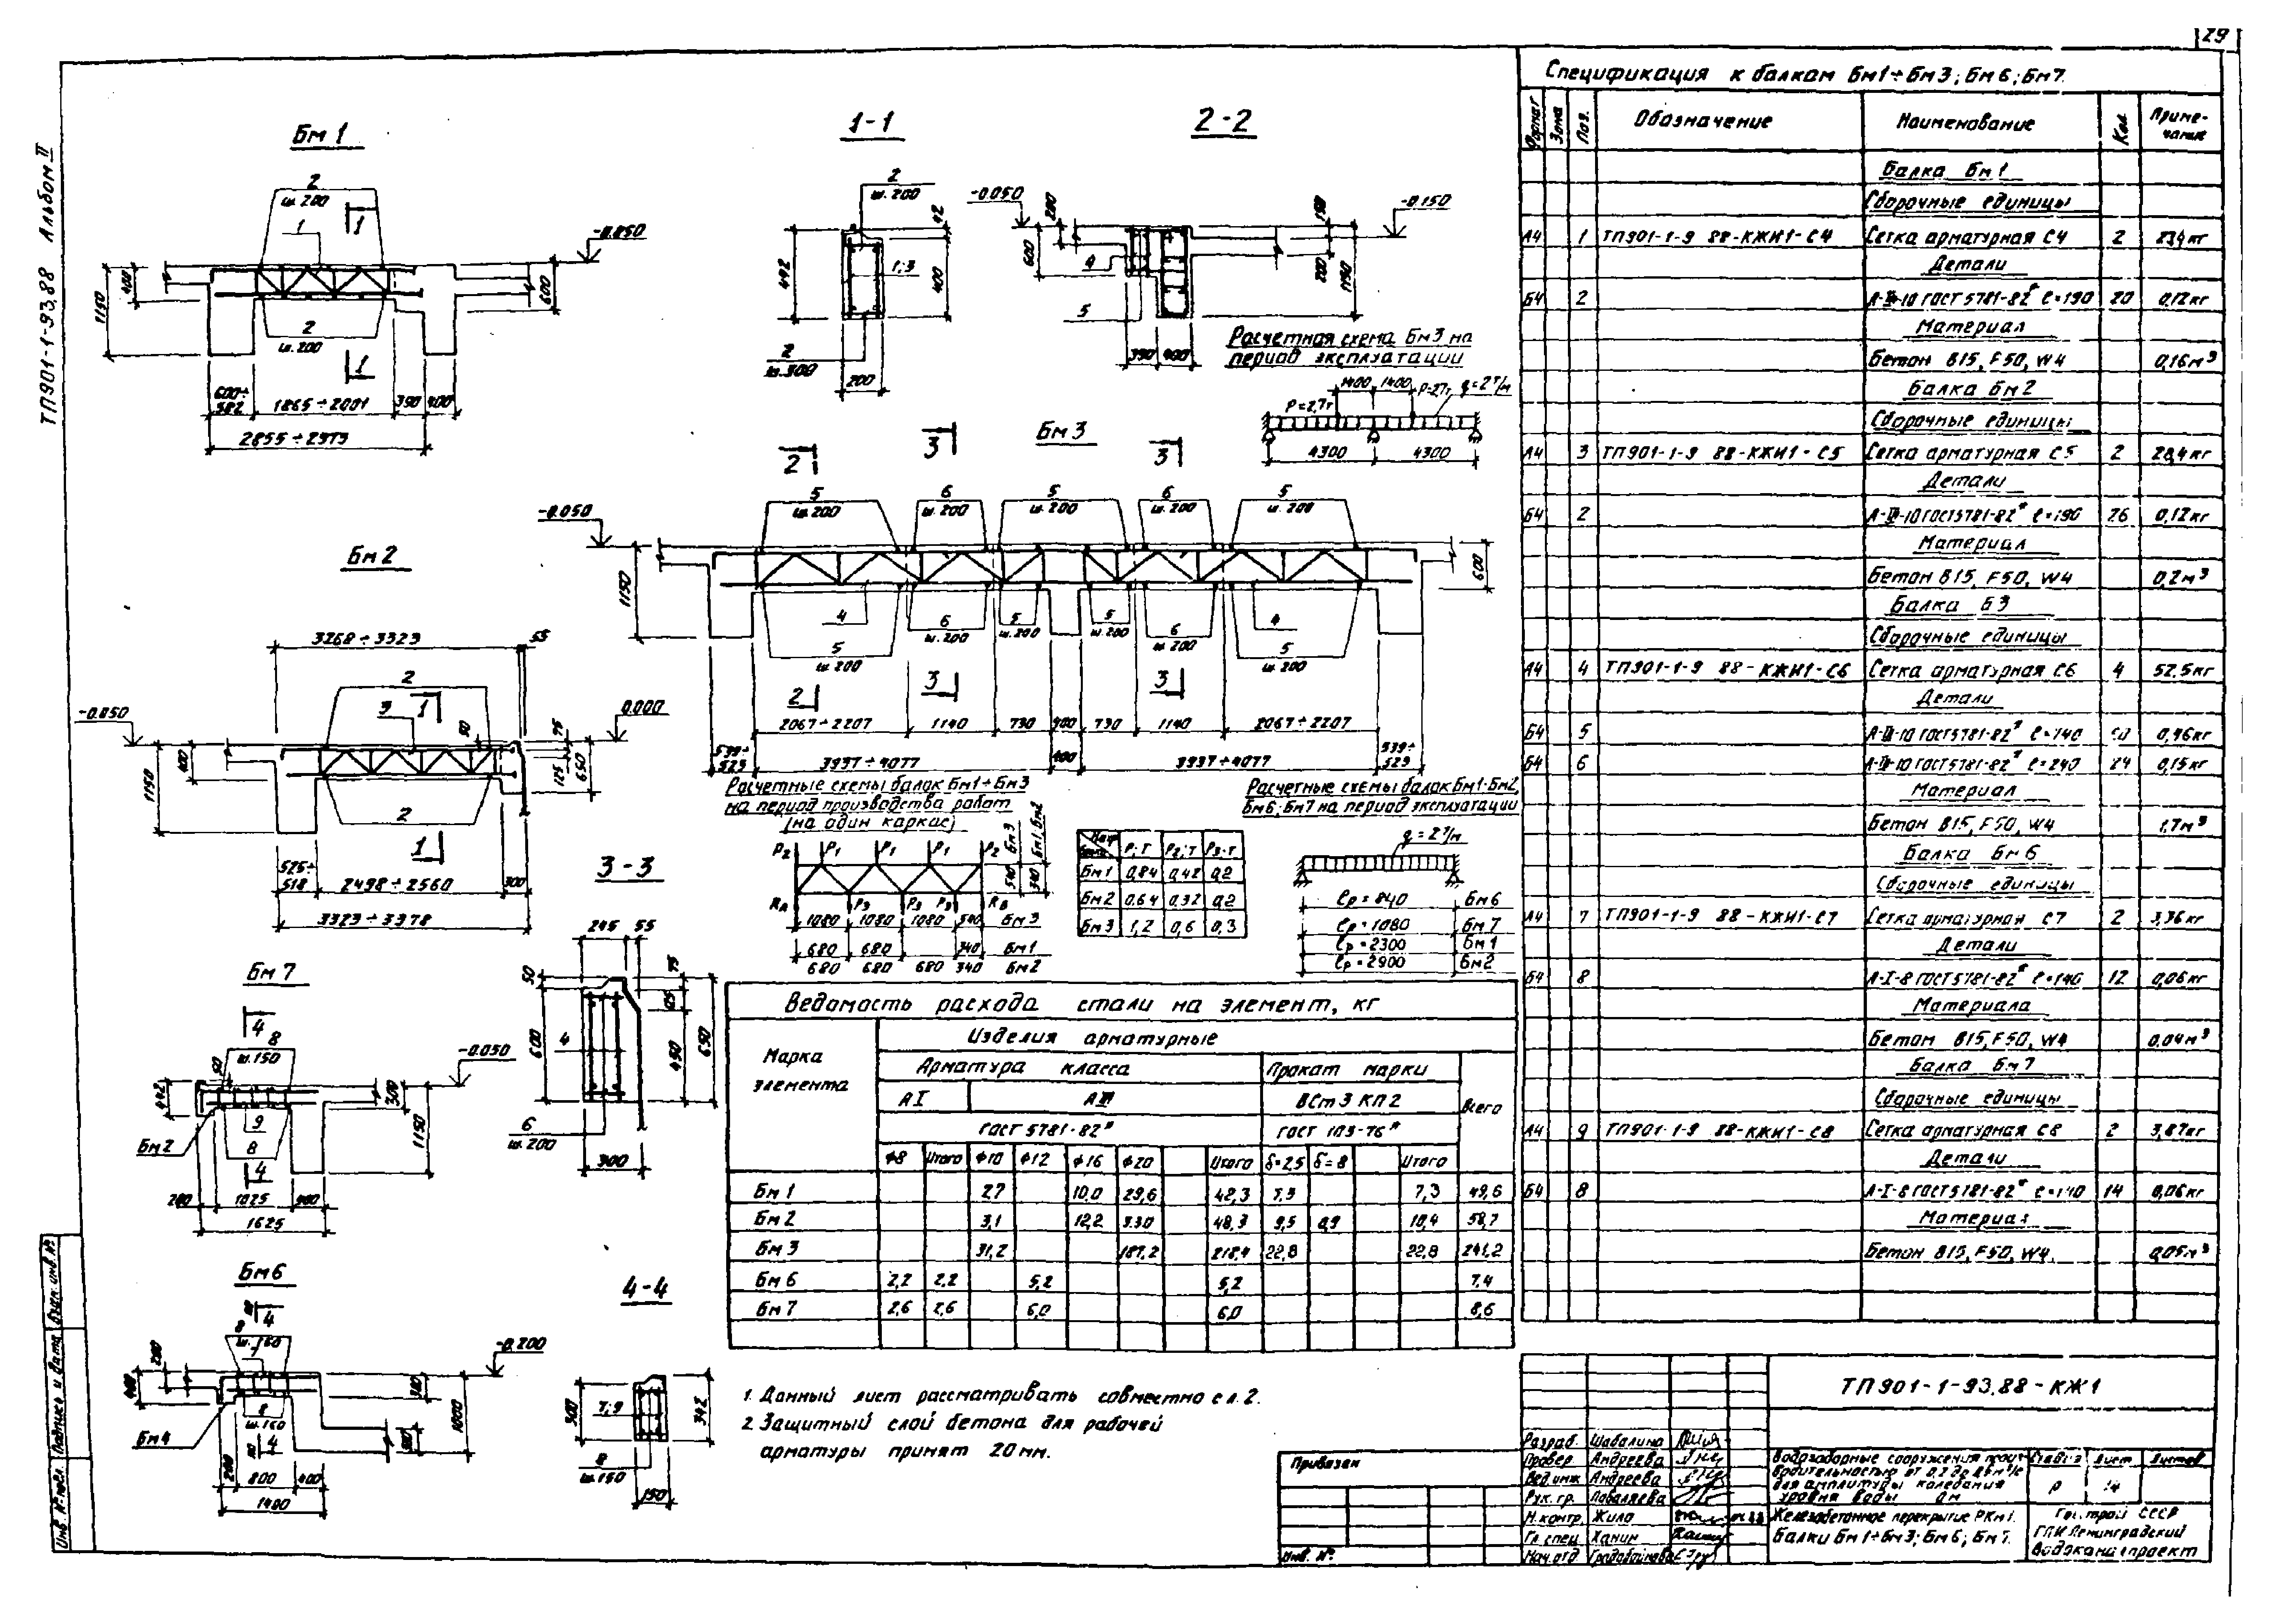 29
ТП901-1-93.88 Альбом II
Бм1
2
ш.200
1
1
-0.050
1150
400
600
2
ш.200
1
600÷
582
1865÷2001
390
400
2855÷2973
1-1
2
ш.200
42
442
1;3
400
2
ш.300
200
2-2
-0.050
200
600
4
5
390
400
150
200
1150
-0.150
Расчетная схема Бм3 на
период эксплуатации
1400
1400
P=2,7т
P=2,7т
q=2т/м
4300
4300
Бм3
2
3
3
5
ш.200
6
ш.200
5
ш.200
6
ш.200
5
ш.200
-0.050
1150
600
4
6
ш.200
5
ш.200
5
ш.200
6
ш.200
4
5
ш.200
5
ш.200
2
3
3
2067÷2207
1140
730
400
730
1140
2067÷2207
539÷
525
3937÷4077
400
3937÷4077
539÷
529
Бм2
3268÷3323
55
2
3
1
50
75
-0.050
0.000
1150
400
125
650
2
1
525÷
518
2498÷2560
300
3323÷3378
Расчетные схемы балок Бм1÷Бм3
на период производства работ
(на один каркас)
P2
P1
P1
P1
P2
540 Бм3
340 Бм1, Бм2
RА
P3
P3
P3
RБ
1080
1080
1080
540
Бм3
680
680
340
Бм1
680
680
680
340
Бм2
P1т P2;т P3;т
Бм1 0,84 0,42 0,2
Бм2 0,64 0,32 0,2
Бм3 1,2 0,6 0,3
Расчетные схемы балок Бм1;Бм2,
Бм6; Бм7 на период эксплуатации
q=2т/м
ℓр=840 Бм6
ℓр=1080 Бм7
ℓр=2300 Бм1
ℓр=2900 Бм2
3-3
245
55
50
75
125
600
4
450
650
6
ш.200
300
Бм7
4
8
ш.150
50
-0.050
442
300
1150
9
8
Бм2
4
200
1025
400
1625
Бм6
4
8
ш.150
7
-0.200
200
400
300
1000
8
ш.150
Бм4
4
200
800
400
1400
4-4
300
7;9
342
8
ш.150
150
Ведомость расхода стали на элемент, кг
Марка
элемента
Изделия арматурные
Арматура класса
Прокат марки
Всего
АI
АIII
ВСт3 КП2
ГОСТ 5781-82*
ГОСТ 103-76*
Ф8 Итого Ф10 Ф12 Ф16 Ф20 Итого δ=2,5 δ=8 Итого
Бм1 2,7 10,0 29,6 42,3 7,3 7,3 49,6
Бм2 3,1 12,2 33.0 48,3 9,5 0,9 10,4 58,7
Бм3 31,2 187,2 218,4 22,8 22,8 241,2
Бм6 2,2 2,2 5,2 5,2 7,4
Бм7 2,6 2,6 6,0 6,0 8,6
1. Данный лист рассматривать совместно с л.2.
2. Защитный слой бетона для рабочей
арматуры принят 20мм.
Спецификация к балкам Бм1÷Бм3; Бм6; Бм7.
Формат Зона Поз. Обозначение Наименование Кол Приме-
чание
Балка Бм1
Сборочные единицы
А4 1 ТП901-1-9 88-КЖИ1-С4 Сетка арматурная С4 2 23,4кг
Детали
Б4 2 А-III-10 ГОСТ 5781-82* ℓ=190 20 0,12кг
Материал
Бетон В15, F50, W4 0,16м³
Балка Бм2
Сборочные единицы
А4 3 ТП901-1-9 88-КЖИ1-С5 Сетка арматурная С5 2 28,4кг
Детали
Б4 2 А-III-10 ГОСТ5781-82* ℓ=190 26 0,12кг
Материал
Бетон В15, F50, W4 0,2м³
Балка Б3
Сборочные единицы
А4 4 ТП901-1-9 88-КЖИ1-С6 Сетка арматурная С6 4 52,5кг
Детали
Б4 5 А-III-10 ГОСТ5781-82* ℓ=140 0,46кг
Б4 6 А-III-10 ГОСТ5781-82* ℓ=240 24 0,15кг
Материал
Бетон В15, F50, W4 1,7м³
Балка Бм6
Сборочные единицы
А4 7 ТП901-1-9 88-КЖИ1-С7 Сетка арматурная С7 2 3,36кг
Детали
Б4 8 А-I-8 ГОСТ5781-82* ℓ=140 12 0,06кг
Материала
Бетон В15, F50, W4 0,04м³
Балка Бм7
Сборочные единицы
А4 9 ТП901-1-9 88-КЖИ1-С8 Сетка арматурная С8 2 3,87кг
Детали
Б4 8 А-I-8 ГОСТ5781-82* ℓ=140 14 0,06кг
Материал
Бетон В15, F50, W4. 0,05м³
ТП901-1-93.88-КЖ1
Разраб. Шабалина
Провер. Андреева
Вед.инж Андреева
Рук. гр. Поваляева
Н.контр. Жило
Гл.спец. Ханин
Нач.отд
Водозаборные сооружения произ-
водительностью от 0,2 до
для амплитуды колебания
уровня воды
Стадия Лист Листов
Р 14
Железобетонное перекрытие РКм1.
Балки Бм1÷Бм3; Бм6; Бм7.
Госстрой СССР
ГПИ Ленинградский
Водоканалпроект
Привязан
Инв. №
Инв. № подл.
Подпись и дата
Взам. инв. №